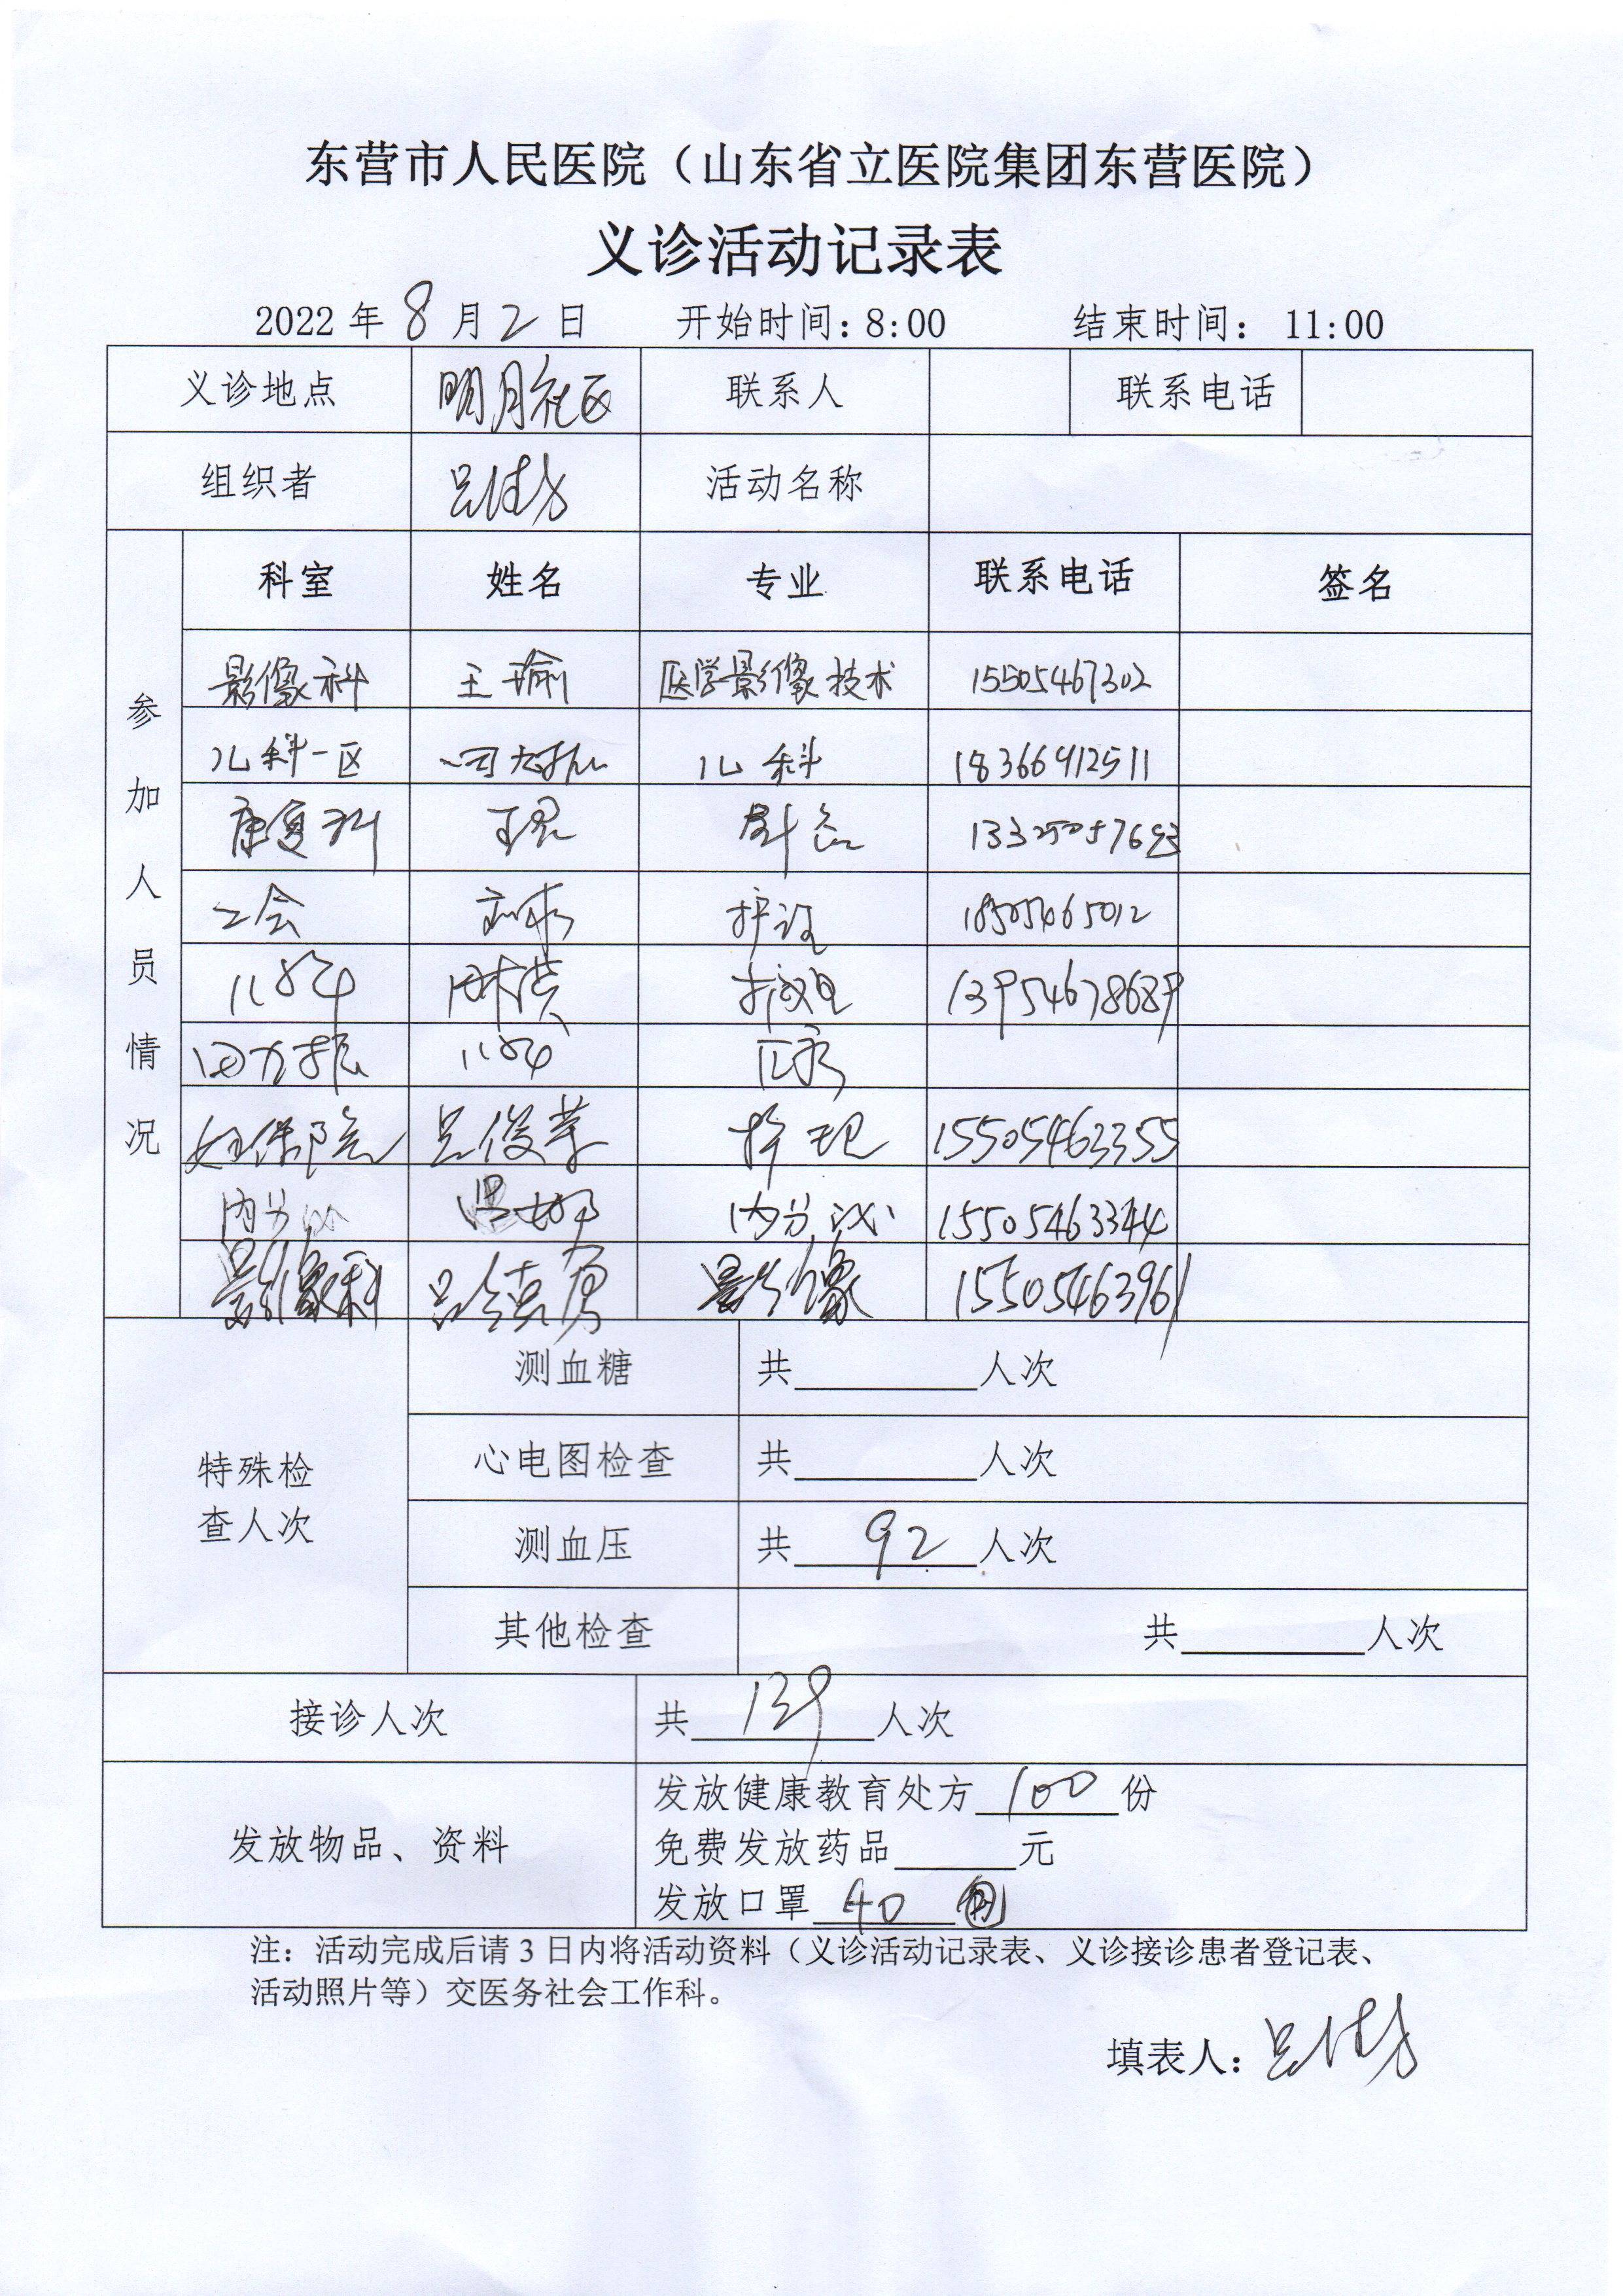 东营市人民医院（山东省立医院集团东营医院）
义诊活动记录表
2022 年 8 月 2 日 开始时间：8:00 结束时间： 11:00
义诊地点 明月社区 联系人 联系电话
组织者 活动名称
参加人员情况
科室 姓名 专业 联系电话 签名
影像科 王瑜 医学影像技术 15505467302
儿科一区 儿科 18366912511
康复科 王君 针灸
工会 护理 18505465012
儿保科 护理 13954678689
儿保科 医疗
妇保院 吕俊華 护理 15505463355
内分泌 温 内分泌 15505463344
影像科 影像 15505463961
特殊检查人次
测血糖 共 人次
心电图检查 共 人次
测血压 共 92 人次
其他检查 共 人次
接诊人次 共 139 人次
发放物品、资料
发放健康教育处方 100 份
免费发放药品 元
发放口罩 40
注：活动完成后请 3 日内将活动资料（义诊活动记录表、义诊接诊患者登记表、
活动照片等）交医务社会工作科。
填表人：